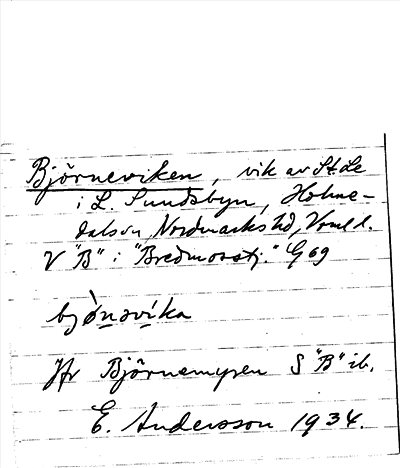 Björneviken, vik av St. Le
i L. Sundsbyn, Holme-
dals sn, Nordmarks hd, Vrml l.
V "B" i "Bredmosstj." G 69
bjǿnəvíka
Jfr Björnemyren S "B" ib.
E. Andersson 1934.